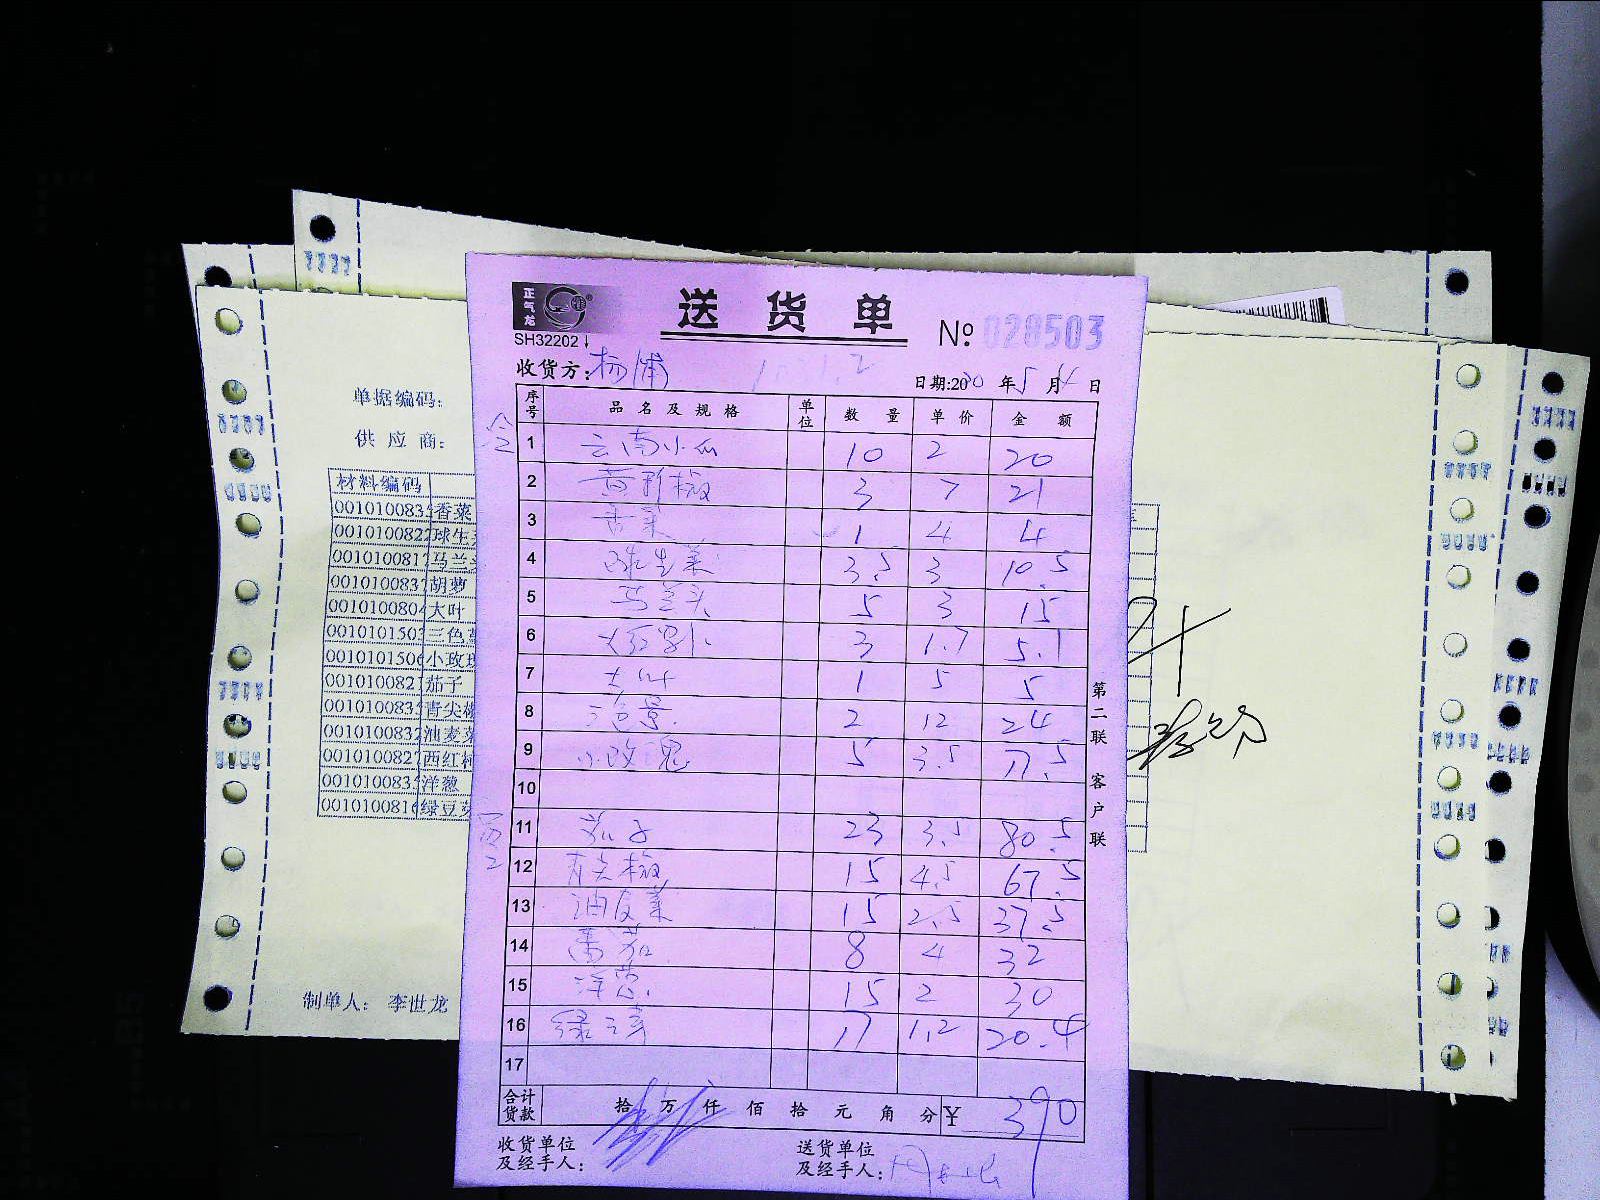 正气龙
送货单
SH32202
№ 028503
收货方: 杨浦
日期:2020年5月4日
序号 品名及规格 单位 数量 单价 金额
1 云南小瓜 10 2 20
2 黄彩椒 3 7 21
3 香菜 1 4 4
4 球生菜 3.5 3 10.5
5 马兰头 5 3 15
6 3 1.7 5.1
7 大叶 1 5 5
8 2 12 24
9 小玫瑰 5 3.5 17.5
10
11 茄子 23 3.5 80.5
12 青尖椒 15 4.5 67.5
13 油麦菜 15 2.5 37.5
14 番茄 8 4 32
15 洋葱 15 2 30
16 绿豆芽 17 1.2 20.4
17
合计货款 拾 万 仟 佰 拾 元 角 分 ¥ 390
收货单位及经手人:
送货单位及经手人:
第二联 客户联
单据编码:
供应商:
材料编码
001010083 香菜
001010082 球生
001010081 马兰
001010083 胡萝
001010080 大叶
001010150 三色
001010150 小玫
001010082 茄子
001010083 青尖椒
001010083 油麦菜
001010082 西红柿
001010083 洋葱
001010081 绿豆芽
制单人: 李世龙